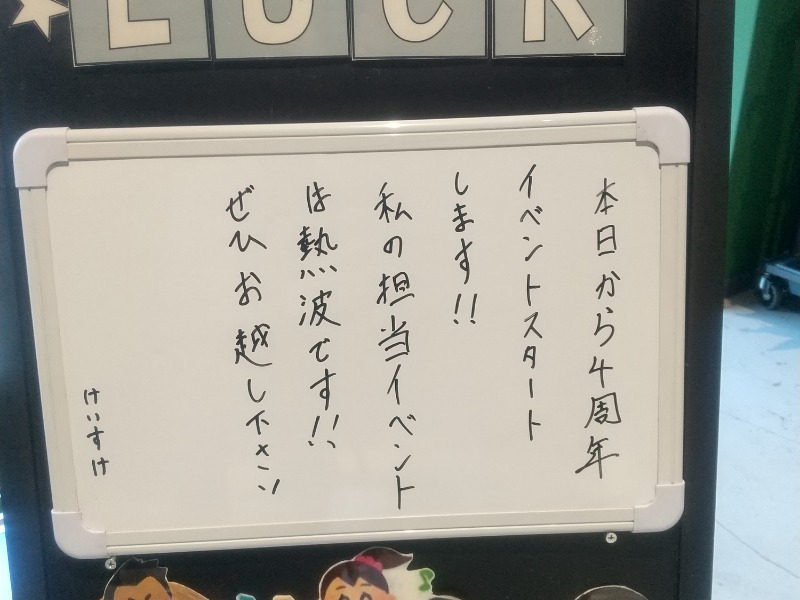 LUCK
本日から4周年
イベントスタート
します!!
私の担当イベント
は熱波です!!
ぜひお越し下さい
けいすけ